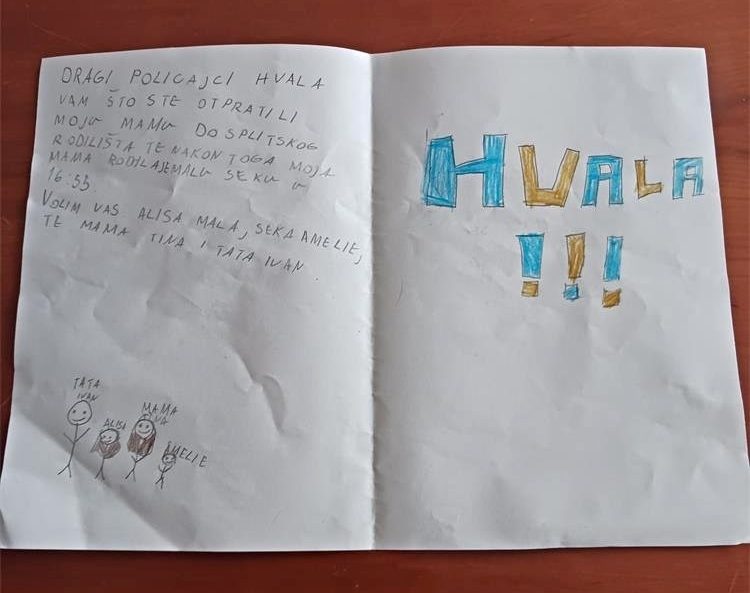 DRAGI POLICAJCI HVALA
VAM ŠTO STE OTPRATILI
MOJU MAMU DO SPLITSKOG
RODILIŠTA TE NAKON TOGA MOJA
MAMA RODILAJEMALU SEKU U
16:55
VOLIM VAS ALISA MALA, SEKA AMELIE,
TE MAMA TINA I TATA IVAN.
TATA
IVAN
ALISA
MAMA
TINA
AMELIE
HVALA
!!!